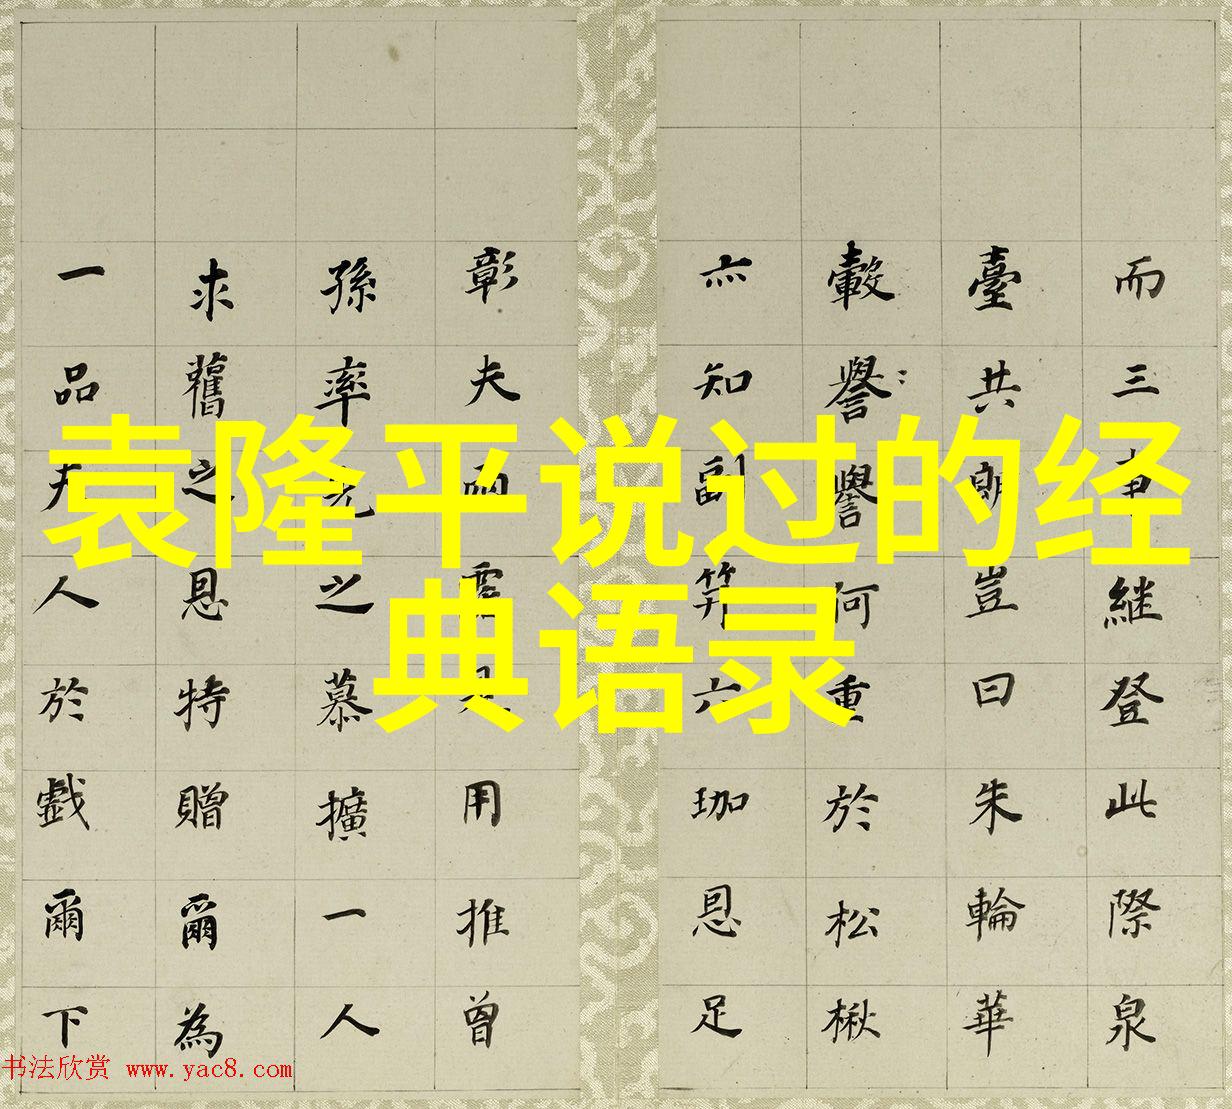 袁隆平说过的经
典语录
而三事継登此際泉
臺共朗豈曰朱輪華
轂譽譽何重於松楸
亦知副笄六珈恩足
彰夫用推曾
孫率之慕擴一人
求舊之恩特贈爾為
一品夫人於戲爾下
书法欣赏 www.yac8.com